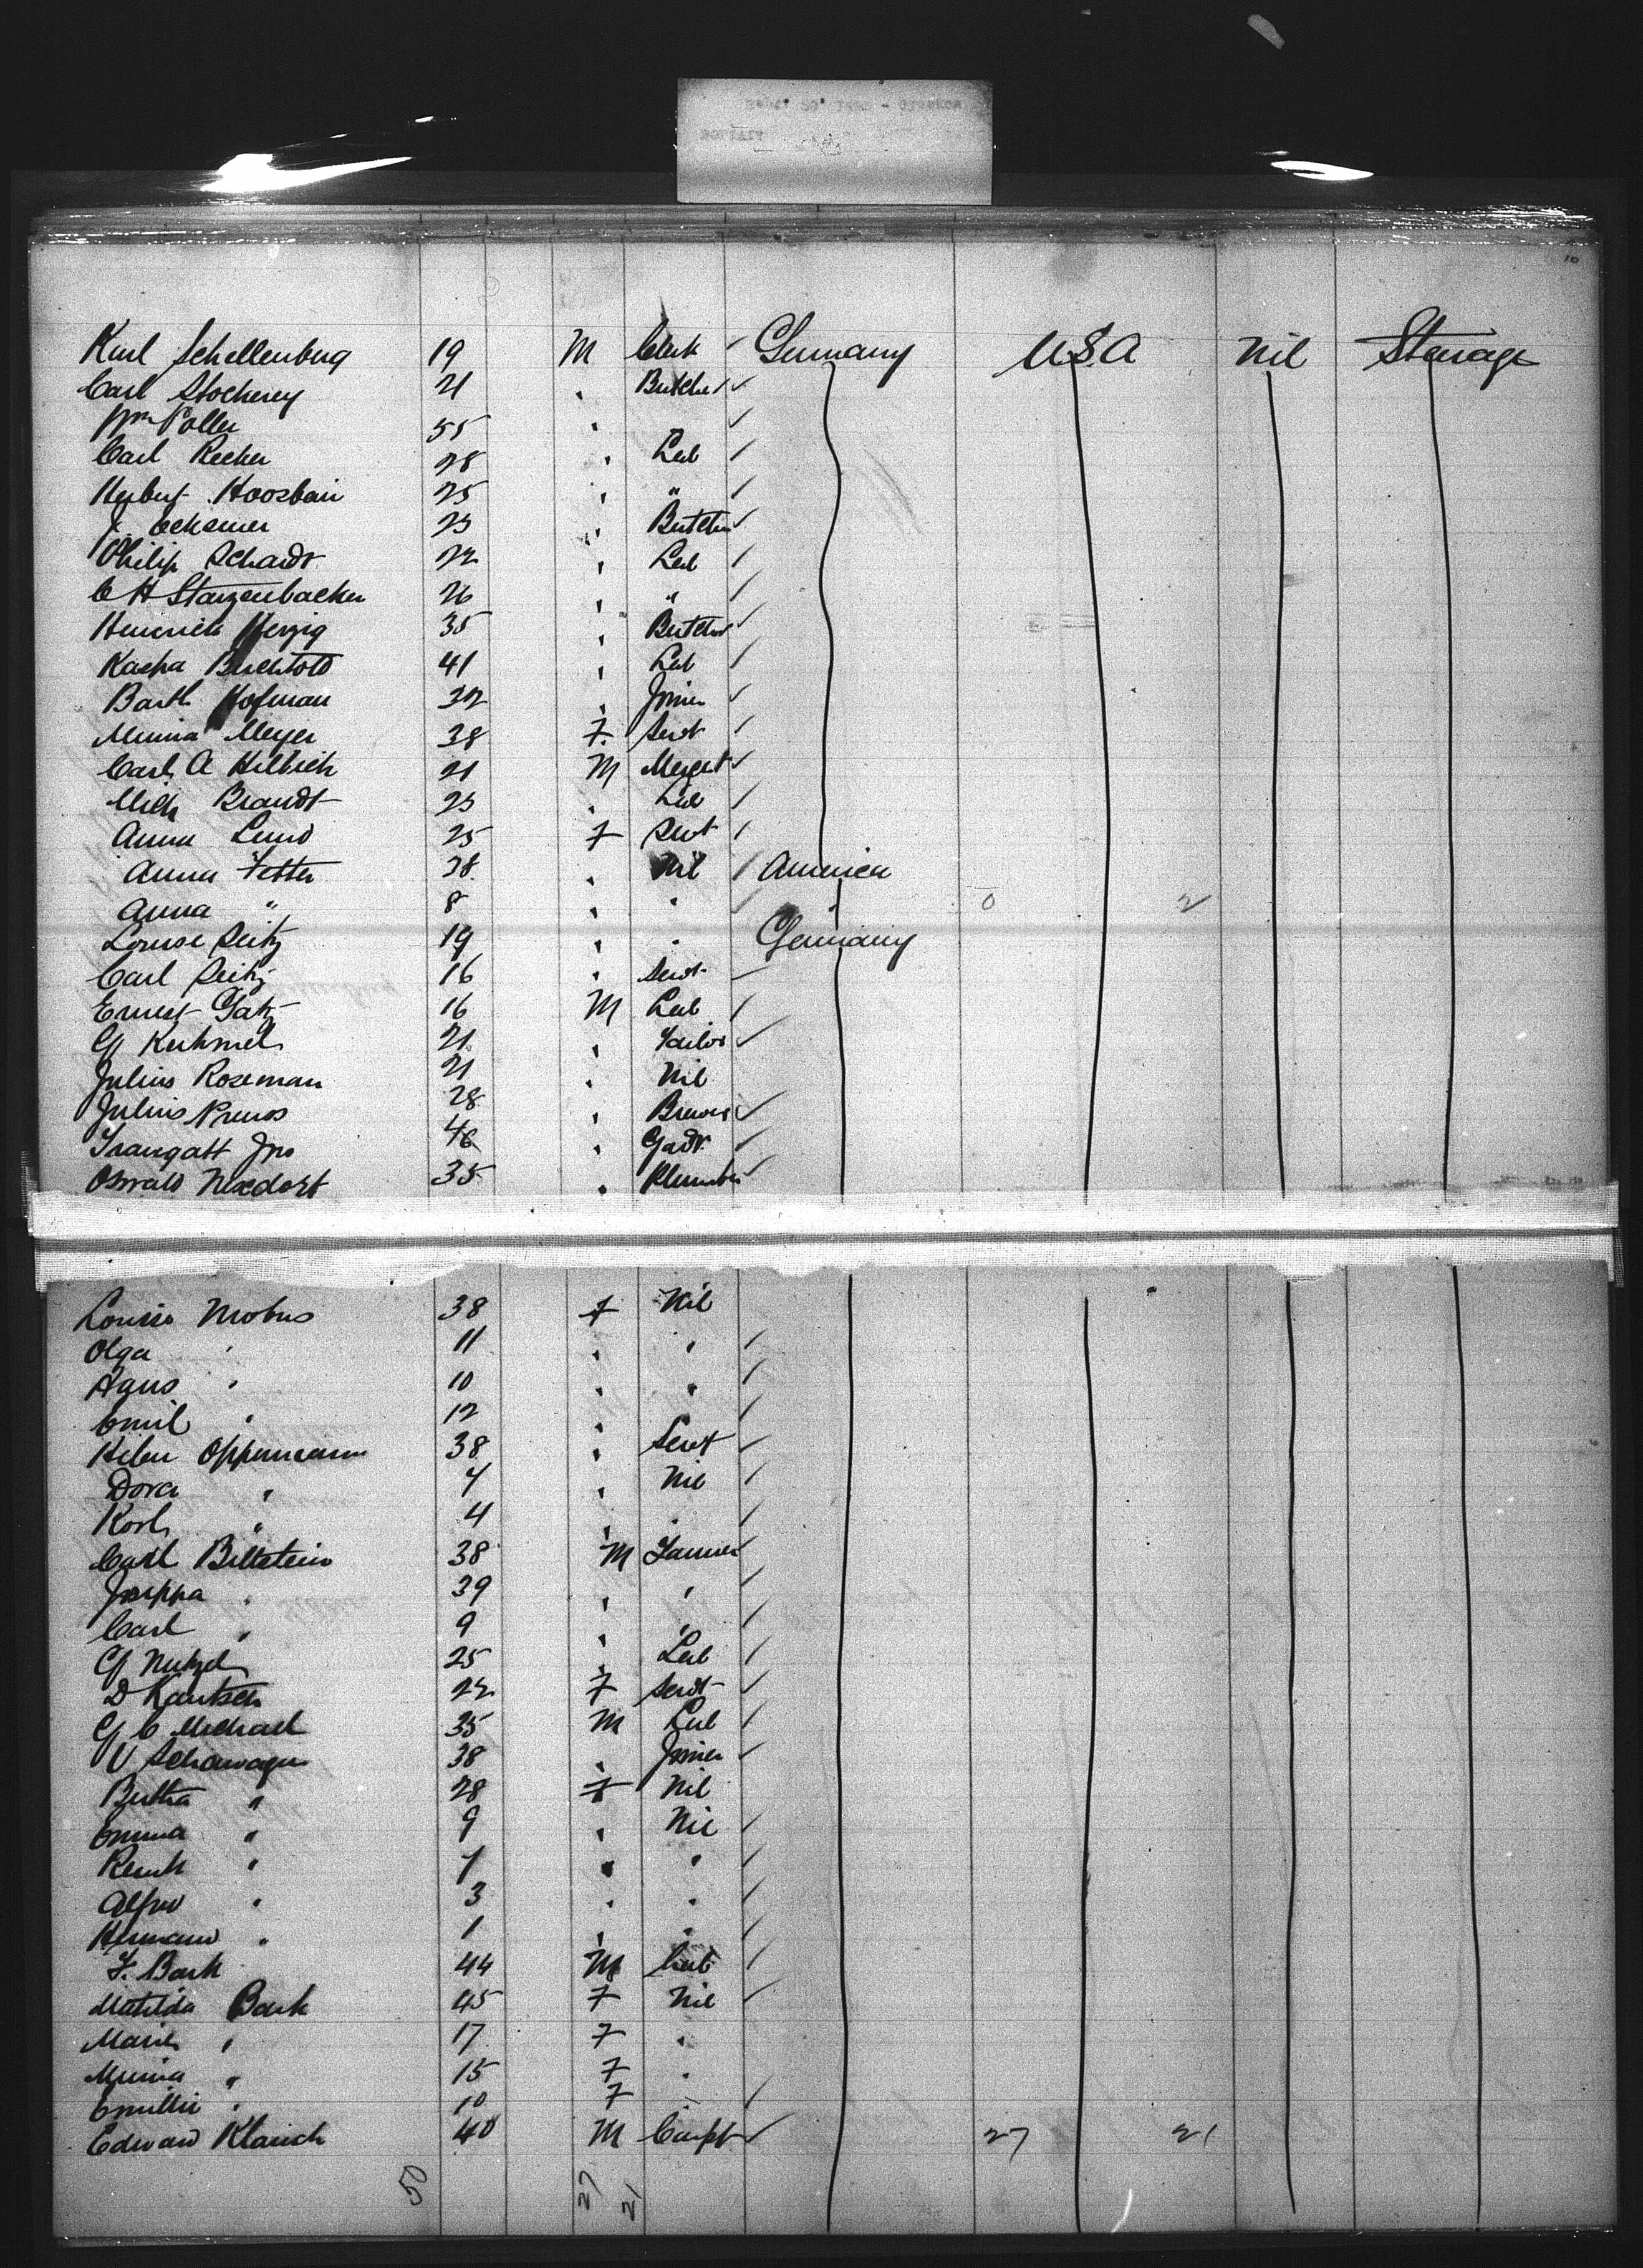 10
Karl Schellenberg 19 M Clerk Germany U.S.A Nil Steerage
Carl Stockerey 21 " Butcher
Wm Poller 55 "
Carl Recker 28 " Lab
Herbert 25 " "
J. 23 " Butcher
Philip Schardt 22 " Lab
C H Stanzenbacker 26 " "
Heinrich Herzig 35 " Butcher
Buchtold 41 " Lab
Barth Hofman 32 " Joiner
Minna Meyer 38 F. Servt
Carl A Hilbrich 21 M
Mich Brandt 23 " Lab
Anna Lund 25 F Servt
Anna Fetter 38 " Nil America
Anna " 8 " " " 0 2
Louise Seitz 19 " " Germany
Carl Seitz 16 " Servt
Ernest Gatz 16 M Lab
G Kuhmel 21 " Tailor
Julius Roseman 21 " Nil
Julius Preuss 28 " Brewer
Jno 46 " Gadr
Oswald Nixdort 35 " Plumber
Louise Mobus 38 F Nil
Olga " 11 " "
Agnes " 10 " "
Emil " 12 "
Helen Oppermann 38 " Servt
Dora " 7 " Nil
Karl " 4 " "
Carl Biltstein 38 M Tanner
" 39 " "
Carl " 9 " "
G Nutzel 25 " Lab
D Kautsch 22 F Servt
G C Michael 35 M Lab
38 " Joiner
Bertha " 28 F Nil
Emma " 9 " Nil
" 7 " "
Alfred " 3 " "
Hermann " 1 " "
F. Bark 44 M
Matilda Bark 45 F Nil
Marie " 17 F "
Minna " 15 F "
Emillie " 10 F
Edward Klauch 40 M Carpt 27 21
50 27 21